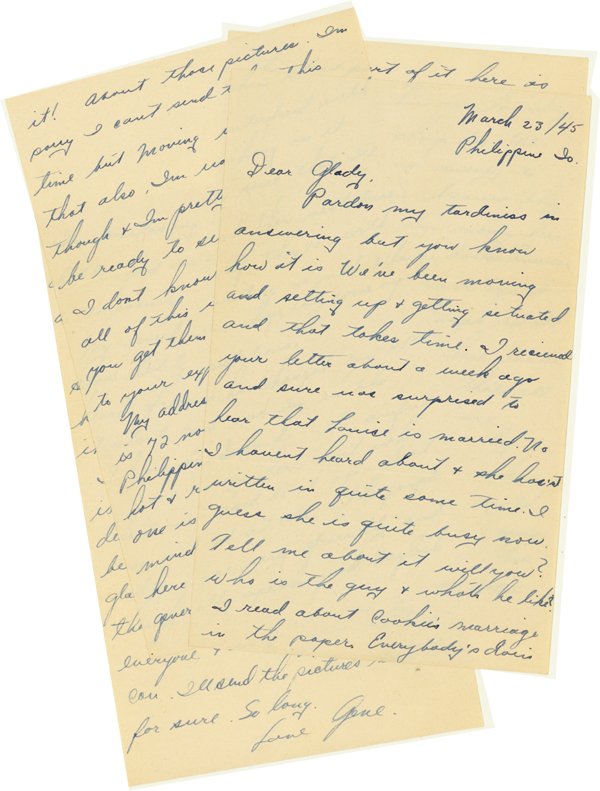 March 23/45
Philippine Is.
Dear Glady,
Pardon my tardiniss in
answering but you know
how it is We've been moving
and setting up & getting situated
and that takes time. I recieved
your letter about a week ago
and sure was surprised to
hear that Louise is married. No
I havent heard about & she hasnt
written in quite some time. I
guess she is quite busy now.
Tell me about it will you?
Who is the guy & whats he like?
I read about Cookies marriage
in the paper. Everybody's doin
it! About those pictures. Im
sorry I cant send
time but moving
that also. Im
though & Im pretty
be ready to
I dont know
all of this
you get them
to your
this
of it here is
My address
is 72 no
Philippin
hot &
one is
be mind
here
the gener
everyone &
con. I'll send the pictures
for sure. So long.
Love Gene.